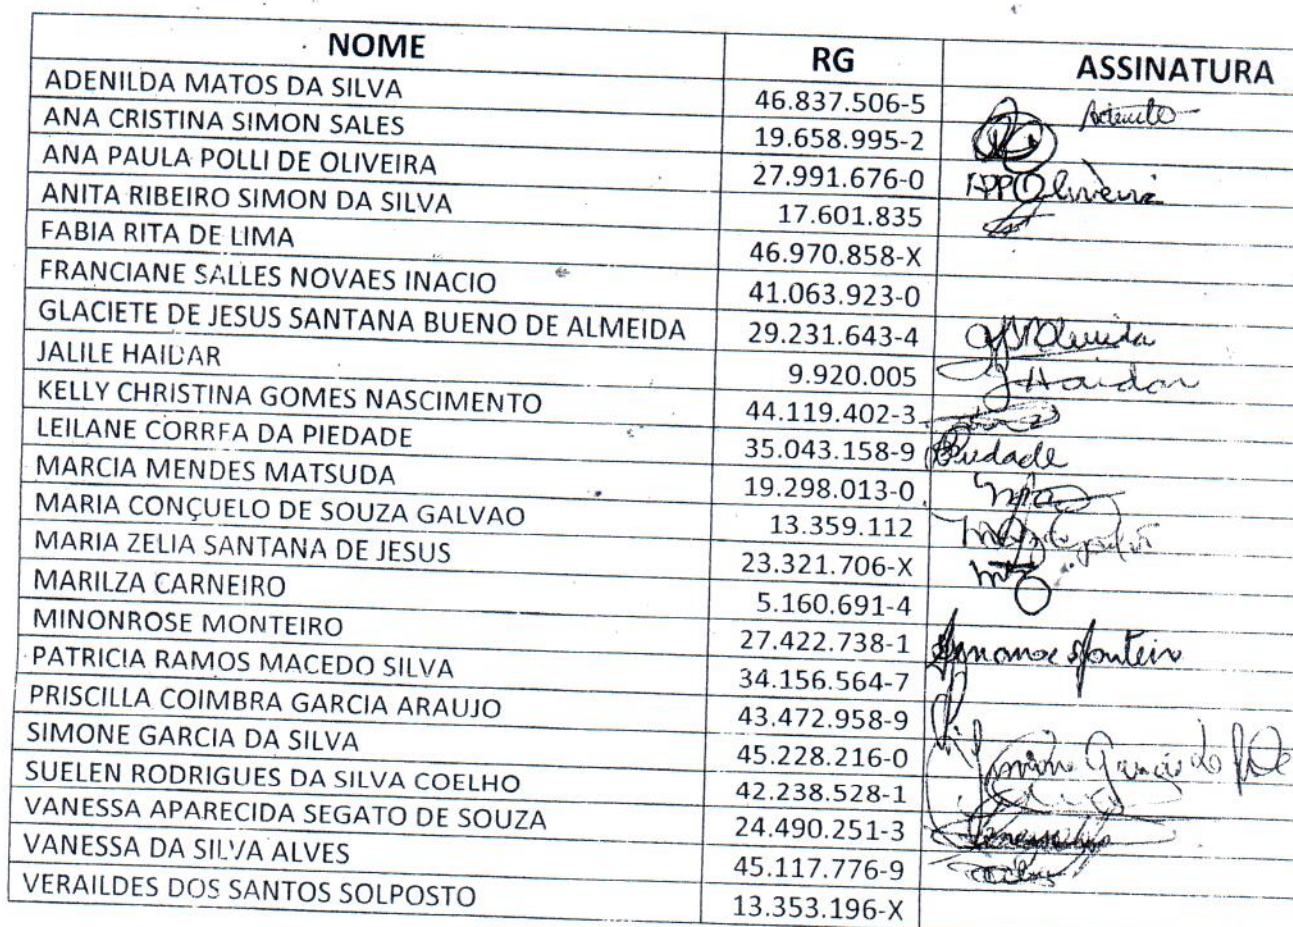 NOME RG ASSINATURA
ADENILDA MATOS DA SILVA 46.837.506-5
ANA CRISTINA SIMON SALES 19.658.995-2
ANA PAULA POLLI DE OLIVEIRA 27.991.676-0 APPOliveira
ANITA RIBEIRO SIMON DA SILVA 17.601.835
FABIA RITA DE LIMA 46.970.858-X
FRANCIANE SALLES NOVAES INACIO 41.063.923-0
GLACIETE DE JESUS SANTANA BUENO DE ALMEIDA 29.231.643-4
JALILE HAIDAR 9.920.005 JHaidar
KELLY CHRISTINA GOMES NASCIMENTO 44.119.402-3
LEILANE CORREA DA PIEDADE 35.043.158-9 Piedade
MARCIA MENDES MATSUDA 19.298.013-0
MARIA CONÇUELO DE SOUZA GALVAO 13.359.112
MARIA ZELIA SANTANA DE JESUS 23.321.706-X
MARILZA CARNEIRO 5.160.691-4
MINONROSE MONTEIRO 27.422.738-1 Monteiro
PATRICIA RAMOS MACEDO SILVA 34.156.564-7
PRISCILLA COIMBRA GARCIA ARAUJO 43.472.958-9
SIMONE GARCIA DA SILVA 45.228.216-0 Simone Garcia da Silva
SUELEN RODRIGUES DA SILVA COELHO 42.238.528-1
VANESSA APARECIDA SEGATO DE SOUZA 24.490.251-3
VANESSA DA SILVA ALVES 45.117.776-9
VERAILDES DOS SANTOS SOLPOSTO 13.353.196-X